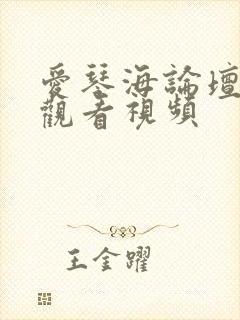 愛琴海論壇
觀看視頻
王金躍